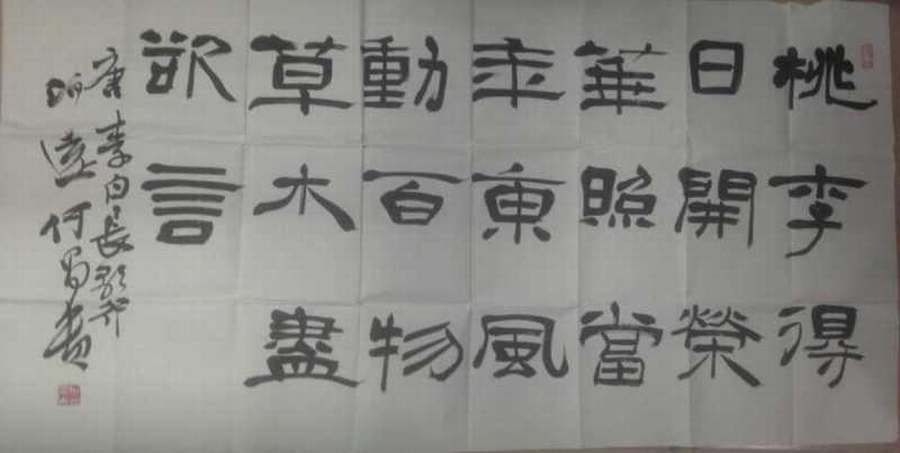 桃李得
日開榮
華照當
年東風
動百物
草木盡
欲言
唐李白長歌行
遠何蜀書